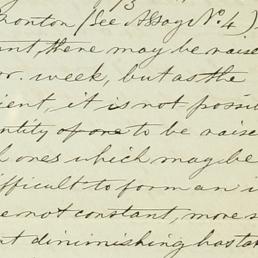 Thornton (See Assay No. 4)
ant, there may be raise
or. week, but as the
ient, it is not possib
ntity of one to be raise
l ones which may be
ifficult to form an i
e not constant, more s
nt diminishing hasta